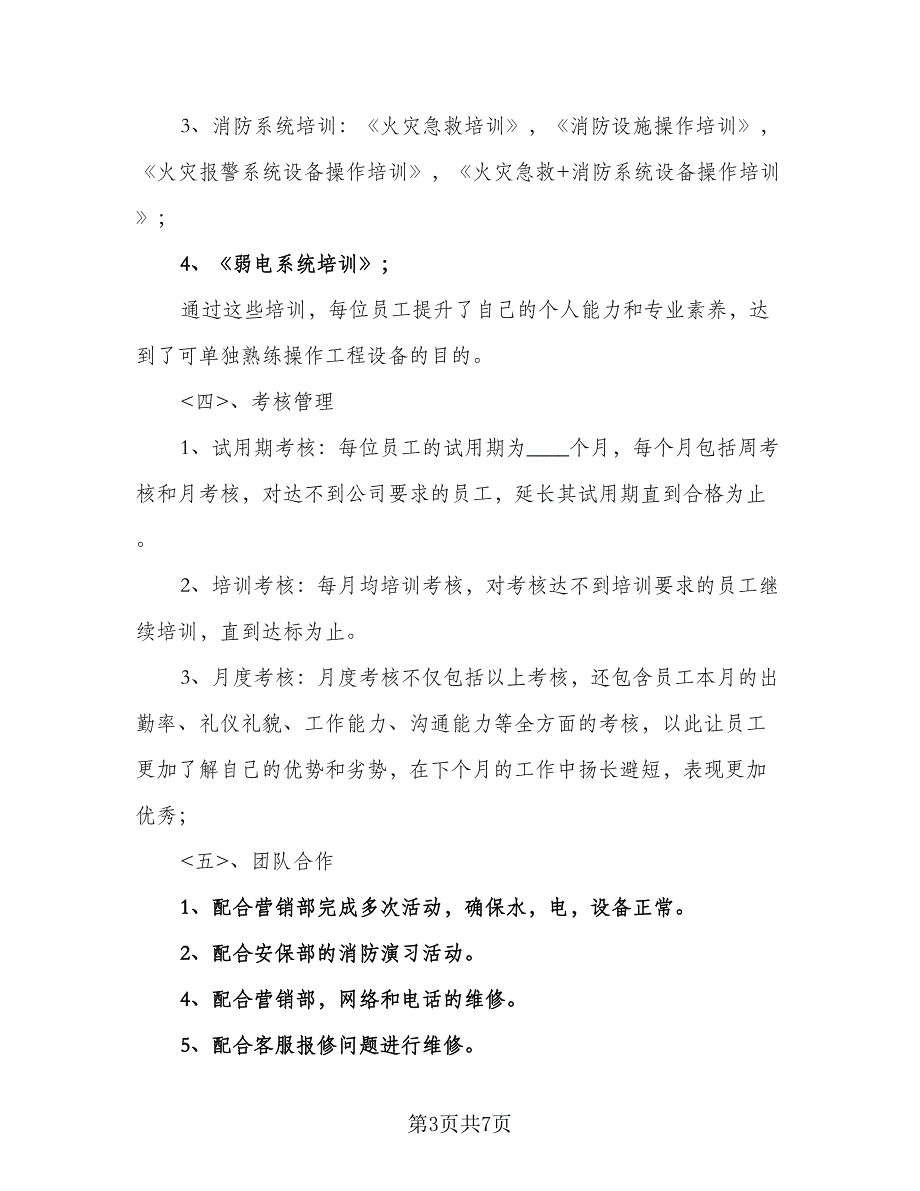 3、消防系统培训：《火灾急救培训》，《消防设施操作培训》，
《火灾报警系统设备操作培训》，《火灾急救+消防系统设备操作培训
》；
4、《弱电系统培训》；
通过这些培训，每位员工提升了自己的个人能力和专业素养，达
到了可单独熟练操作工程设备的目的。
<四>、考核管理
1、试用期考核：每位员工的试用期为____个月，每个月包括周考
核和月考核，对达不到公司要求的员工，延长其试用期直到合格为止
。
2、培训考核：每月均培训考核，对考核达不到培训要求的员工继
续培训，直到达标为止。
3、月度考核：月度考核不仅包括以上考核，还包含员工本月的出
勤率、礼仪礼貌、工作能力、沟通能力等全方面的考核，以此让员工
更加了解自己的优势和劣势，在下个月的工作中扬长避短，表现更加
优秀；
<五>、团队合作
1、配合营销部完成多次活动，确保水，电，设备正常。
2、配合安保部的消防演习活动。
4、配合营销部，网络和电话的维修。
5、配合客服报修问题进行维修。
第3页共7页